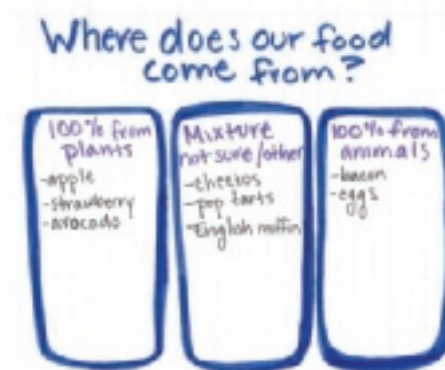 Where does our food
come from?
100% from
plants
-apple
-strawberry
-avocado
Mixture
not sure/other
-cheetos
-pop tarts
-English muffin
100% from
animals
-bacon
-eggs